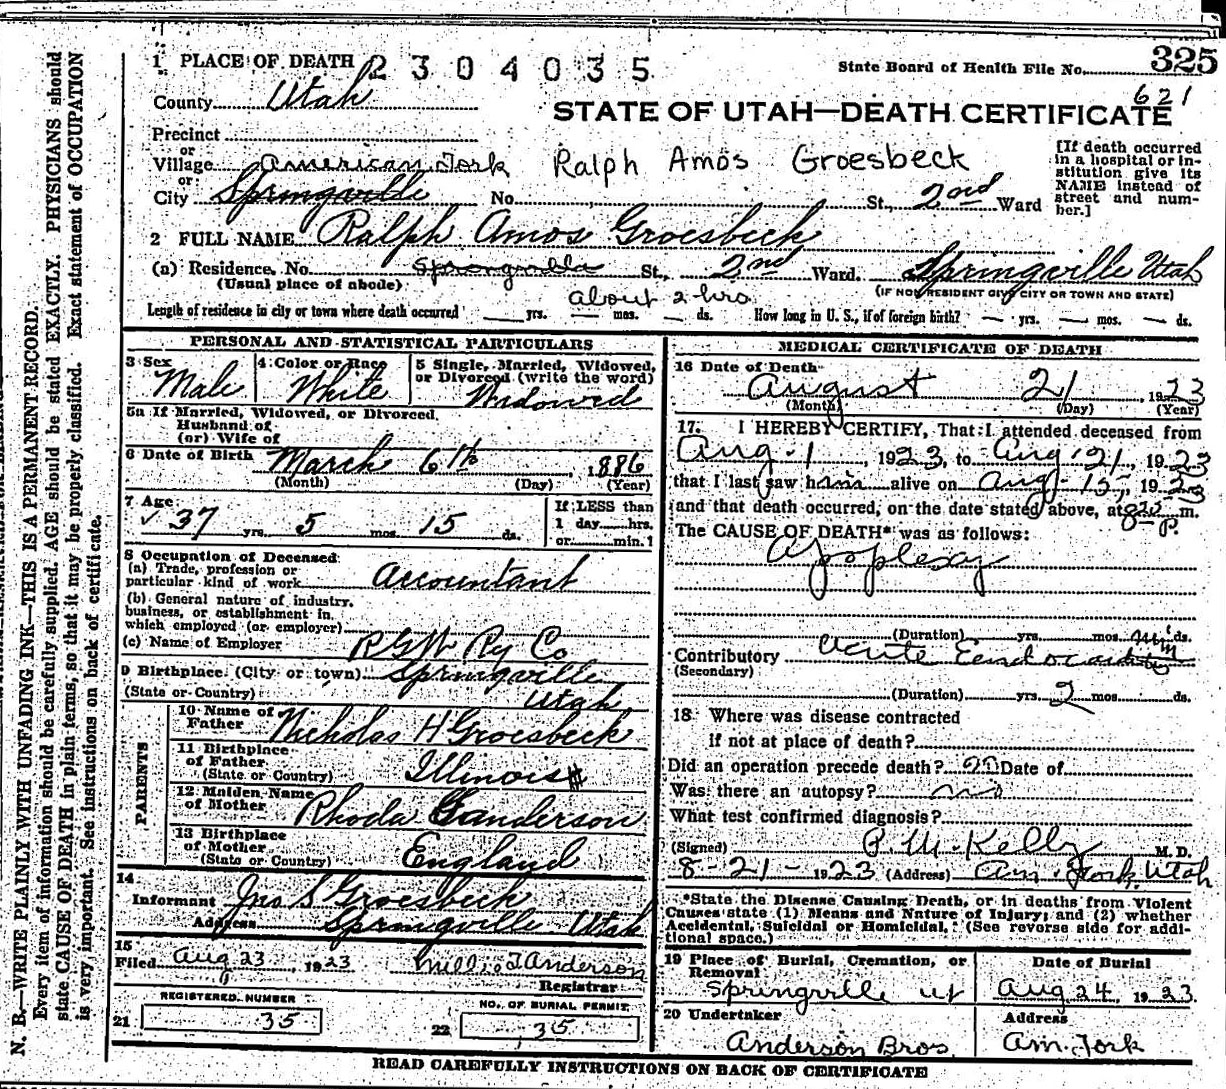 1 PLACE OF DEATH 2304035
State Board of Health File No. 325
County Utah
621
STATE OF UTAH—DEATH CERTIFICATE
Precinct
or
Village American Fork Ralph Amos Groesbeck
or
City Springville No. St., 2nd Ward
[If death occurred
in a hospital or in-
stitution give its
NAME instead of
street and num-
ber.]
2 FULL NAME Ralph Amos Groesbeck
(a) Residence. No. Springville St., 2nd Ward. Springville Utah
(Usual place of abode) (IF NON-RESIDENT GIVE CITY OR TOWN AND STATE)
about 2 hrs
Length of residence in city or town where death occurred — yrs. — mos. — ds. How long in U. S., if of foreign birth? — yrs. — mos. — ds.
PERSONAL AND STATISTICAL PARTICULARS
3 Sex
Male
4 Color or Race
White
5 Single, Married, Widowed,
or Divorced (write the word)
Widowed
5a If Married, Widowed, or Divorced,
Husband of
(or) Wife of
6 Date of Birth March 6th, 1886
(Month) (Day) (Year)
7 Age
37 yrs. 5 mos. 15 ds.
If LESS than
1 day....hrs.
or....min.?
8 Occupation of Deceased
(a) Trade, profession or
particular kind of work Accountant
(b) General nature of industry,
business, or establishment in
which employed (or employer)
(c) Name of Employer RGW Ry Co
9 Birthplace (City or town) Springville
(State or Country) Utah
PARENTS
10 Name of
Father Nicholas H Groesbeck
11 Birthplace
of Father
(State or Country) Illinois
12 Maiden Name
of Mother Rhoda Sanderson
13 Birthplace
of Mother
(State or Country) England
14
Informant Jno S Groesbeck
Address Springville Utah
15
Filed Aug 23, 1923 Anderson
Registrar
REGISTERED NUMBER
21 35
NO. OF BURIAL PERMIT
22 35
MEDICAL CERTIFICATE OF DEATH
16 Date of Death
August 21 1923
(Month) (Day) (Year)
17. I HEREBY CERTIFY, That I attended deceased from
Aug. 1, 1923, to Aug. 21, 1923
that I last saw him alive on Aug. 15, 1923
and that death occurred, on the date stated above, at 820 P. m.
The CAUSE OF DEATH* was as follows:
Apoplexy
(Duration) yrs. mos. ds.
Contributory Acute Endocarditis
(Secondary)
(Duration) yrs. 2 mos. ds.
18 Where was disease contracted
if not at place of death?
Did an operation precede death? no Date of
Was there an autopsy? no
What test confirmed diagnosis?
(Signed) P. M. Kelly M. D.
8-21-1923 (Address) Am. Fork, Utah
*State the Disease Causing Death, or in deaths from Violent
Causes state (1) Means and Nature of Injury; and (2) whether
Accidental, Suicidal or Homicidal. (See reverse side for addi-
tional space.)
19 Place of Burial, Cremation, or
Removal
Springville Ut
Date of Burial
Aug 24, 1923
20 Undertaker
Anderson Bros.
Address
Am. Fork
READ CAREFULLY INSTRUCTIONS ON BACK OF CERTIFICATE
N. B.—WRITE PLAINLY WITH UNFADING INK—THIS IS A PERMANENT RECORD.
Every item of information should be carefully supplied. AGE should be stated EXACTLY. PHYSICIANS should
state CAUSE OF DEATH in plain terms, so that it may be properly classified. Exact statement of OCCUPATION
is very important. See instructions on back of certificate.